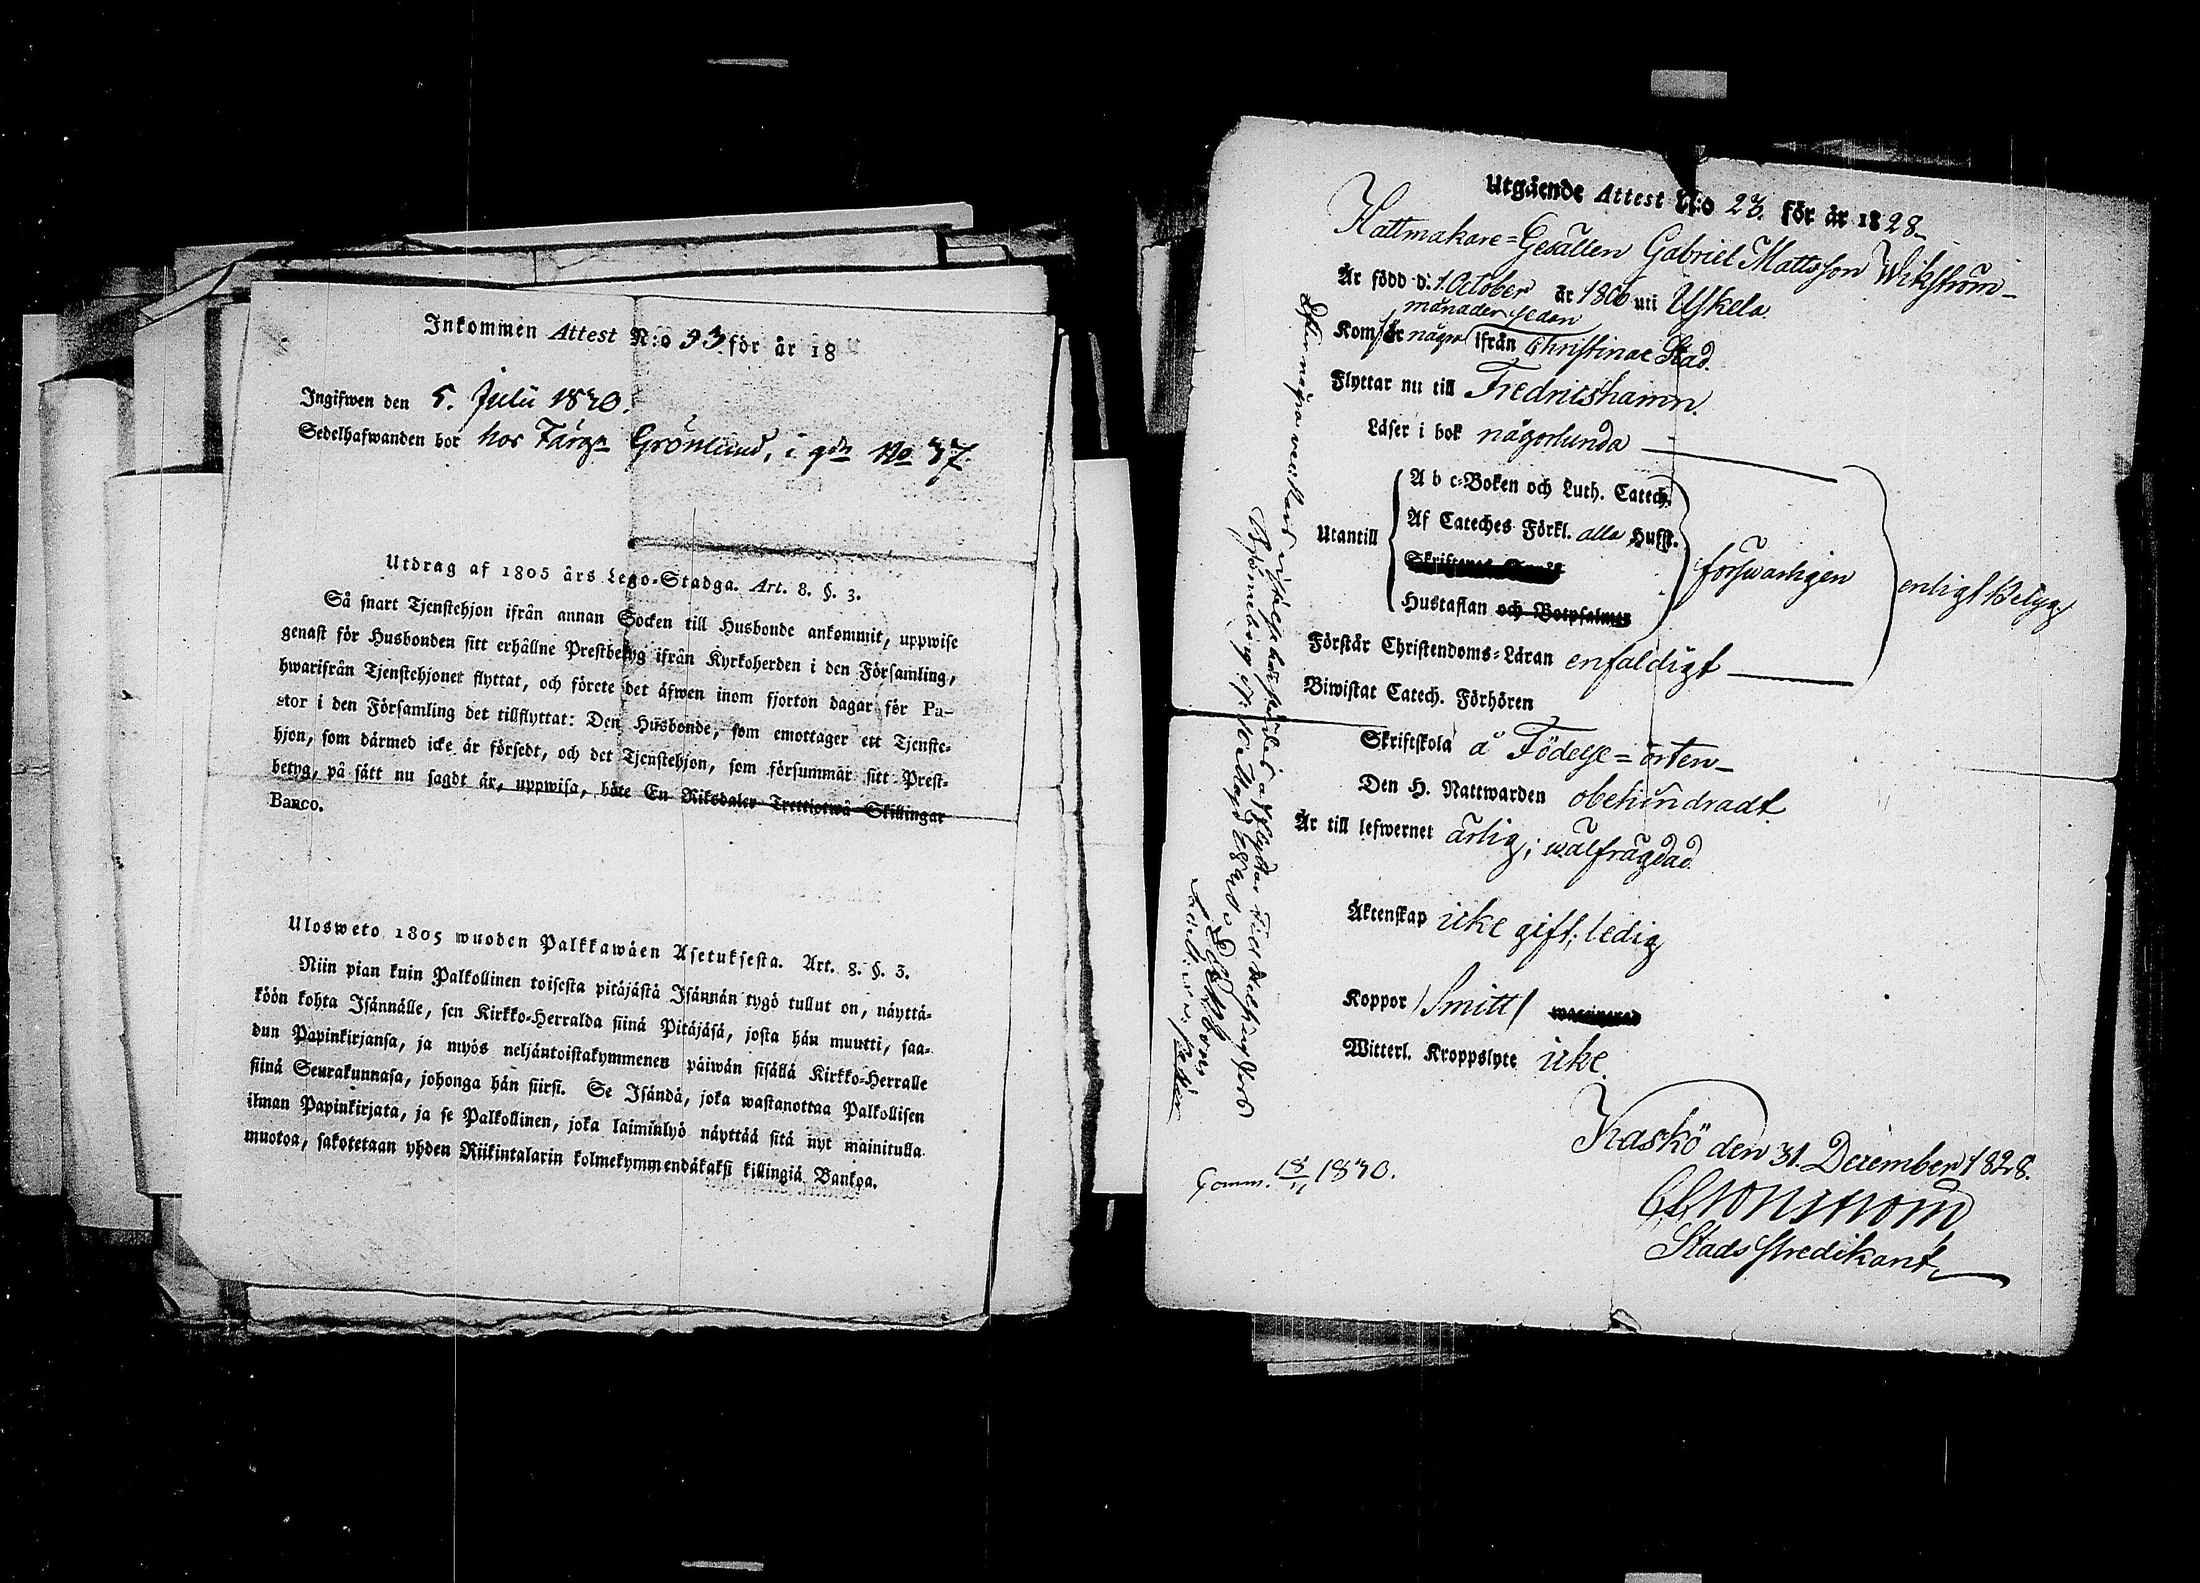 Inkommen Attest N:o 93 för år 18
Ingifwen den 5. Julii 1830.
Sedelhafwanden bor hos Färg:n Grönlund, i gdn No 37.
Utdrag af 1805 års Lego-Stadga. Art. 8. §. 3.
Så snart Tjenstehjon ifrån annan Socken till Husbonde ankommit, uppwise
genast för Husbonden sitt erhållne Prestbetyg ifrån Kyrkoherden i den Församling,
hwarifrån Tjenstehjonet flyttat, och förete det äfwen inom fjorton dagar för Pa-
stor i den Församling det tillflyttat: Den Husbonde, som emottager ett Tjenste-
hjon, som därmed icke är försedt, och det Tjenstehjon, som försummar sitt Prest-
betyg, på sätt nu sagdt är, uppwisa, böte En Riksdaler Trettiotwå Skillingar
Banco.
Ulosweto 1805 wuoden Palkkawäen Asetuksesta. Art. 8. §. 3.
Niin pian kuin Palkollinen toisesta pitäjästä Isännän tygö tullut on, näyttä-
köön kohta Isännälle, sen Kirkko-Herralda siinä Pitäjäsä, josta hän muutti, saa-
dun Papinkirjansa, ja myös neljäntoistakymmenen päiwän sisällä Kirkko-Herralle
siinä Seurakunnasa, johonga hän siirsi. Se Isändä, joka wastanottaa Palkollisen
ilman Papinkirjata, ja se Palkollinen, joka laiminlyö näyttää sitä nyt mainitulla
muotoa, sakotetaan yhden Riikintalarin kolmekymmendäkaksi killingiä Bankoa.
Utgående Attest N:o 23. för år 1828
Hattmakare=Gesällen Gabriel Mattsson Wikström
Är född d. 1. October år 1806 uti Uskela
månader sedan
Kom för några ifrån Christinæ Stad.
Flyttar nu till Fredricshamn.
Läser i bok någorlunda
A b c-Boken och Luth. Catech.
Utantill Af Cateches Förkl. alla Husst. förswarligen enligt Betyg
Hustaflan och Botpsalmer
Förstår Christendoms-Läran enfaldigt
Biwistat Catech. Förhören
Skriftskola å Födelse=orten
Den H. Nattwarden obehindradt
Är till lefwernet ärlig; wälfrägdad.
Äktenskap icke gift; ledig
Koppor /Smitt/
Witterl. Kroppslyte icke.
Kaskö den 31. December 1828.
Stads Predikant
Comm. 18/11 1830.